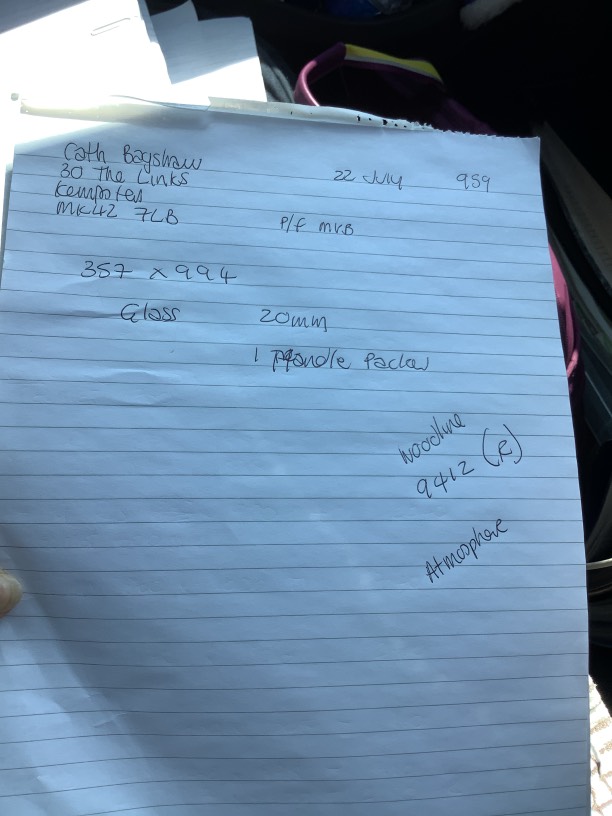 Cath Bagshaw
30 The Links
Kempsten
MK42 7LB
22 July 959
P/f MKB
357 x 994
Glass 20mm
1 Handle Packer
Woodline
9412 (R)
Atmosphere